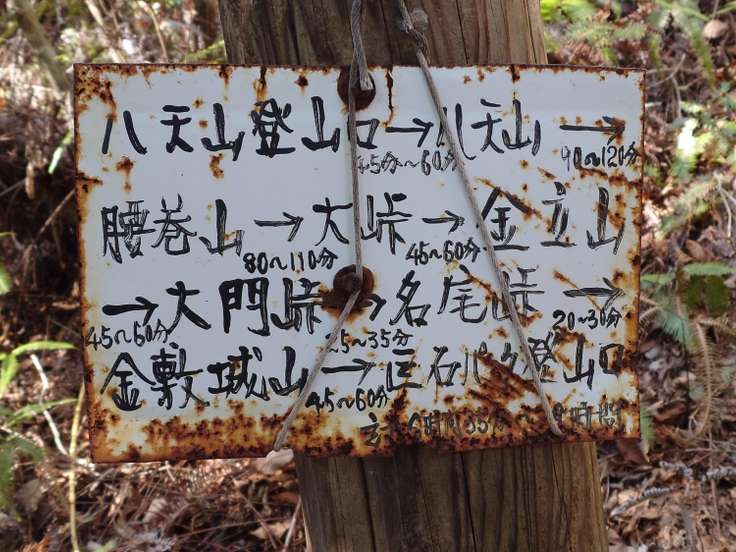 八天山登山口→八天山→
45分～60分 90～120分
腰巻山→大峠→金立山
80～110分 45～60分
→大門峠→名尾峠→
45～60分 5～35分 20～30分
金敷城山→巨石パーク登山口
45～60分